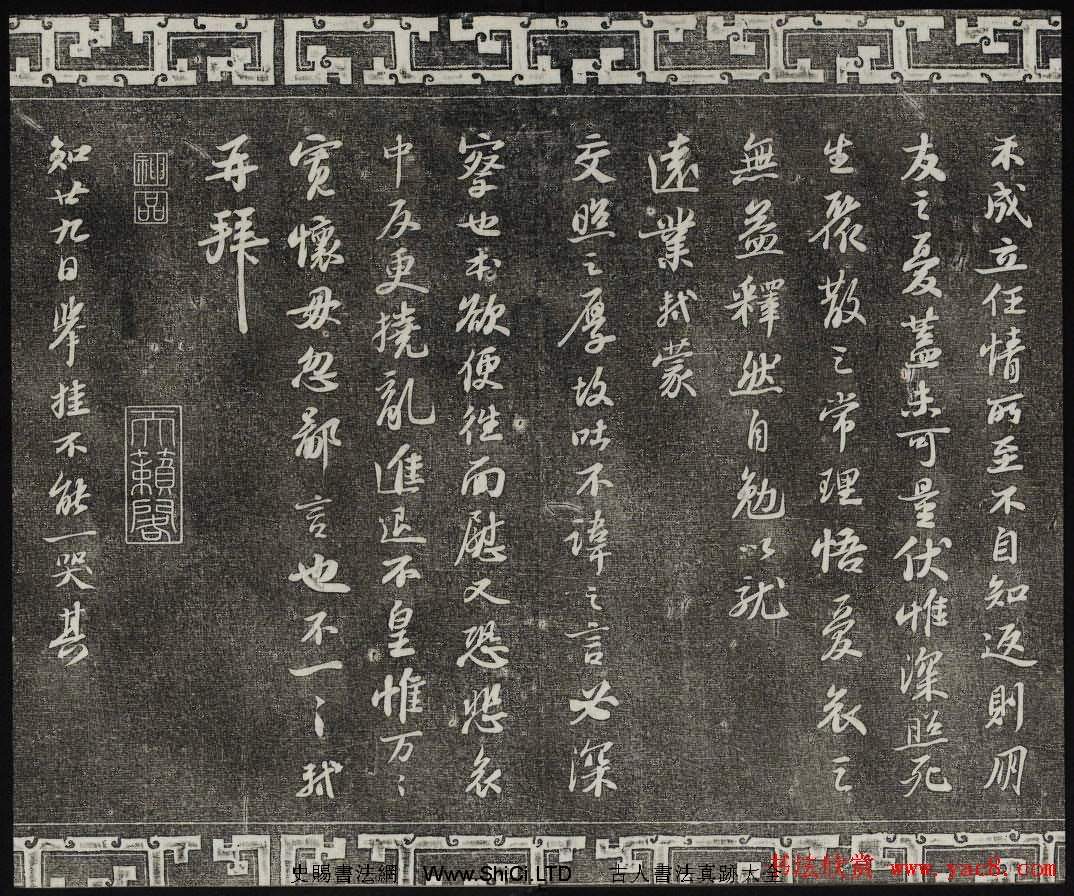 不成立任情所至不自知返則朋
友之憂蓋未可量伏惟深照死
生聚散之常理悟憂哀之
無益釋然自勉以就
遠業軾蒙
交照之厚故吐不諱之言必深
察也本欲便往面慰又恐悲哀
中反更撓亂進退不皇惟万〻
寬懷毋忽鄙言也不一〻軾
再拜
神品
天籟閣
知廿九日舉挂不能一哭其
史賜書法網 Www.ShiCi.LTD 古人書法真跡大全
书法欣赏 www.yac8.com